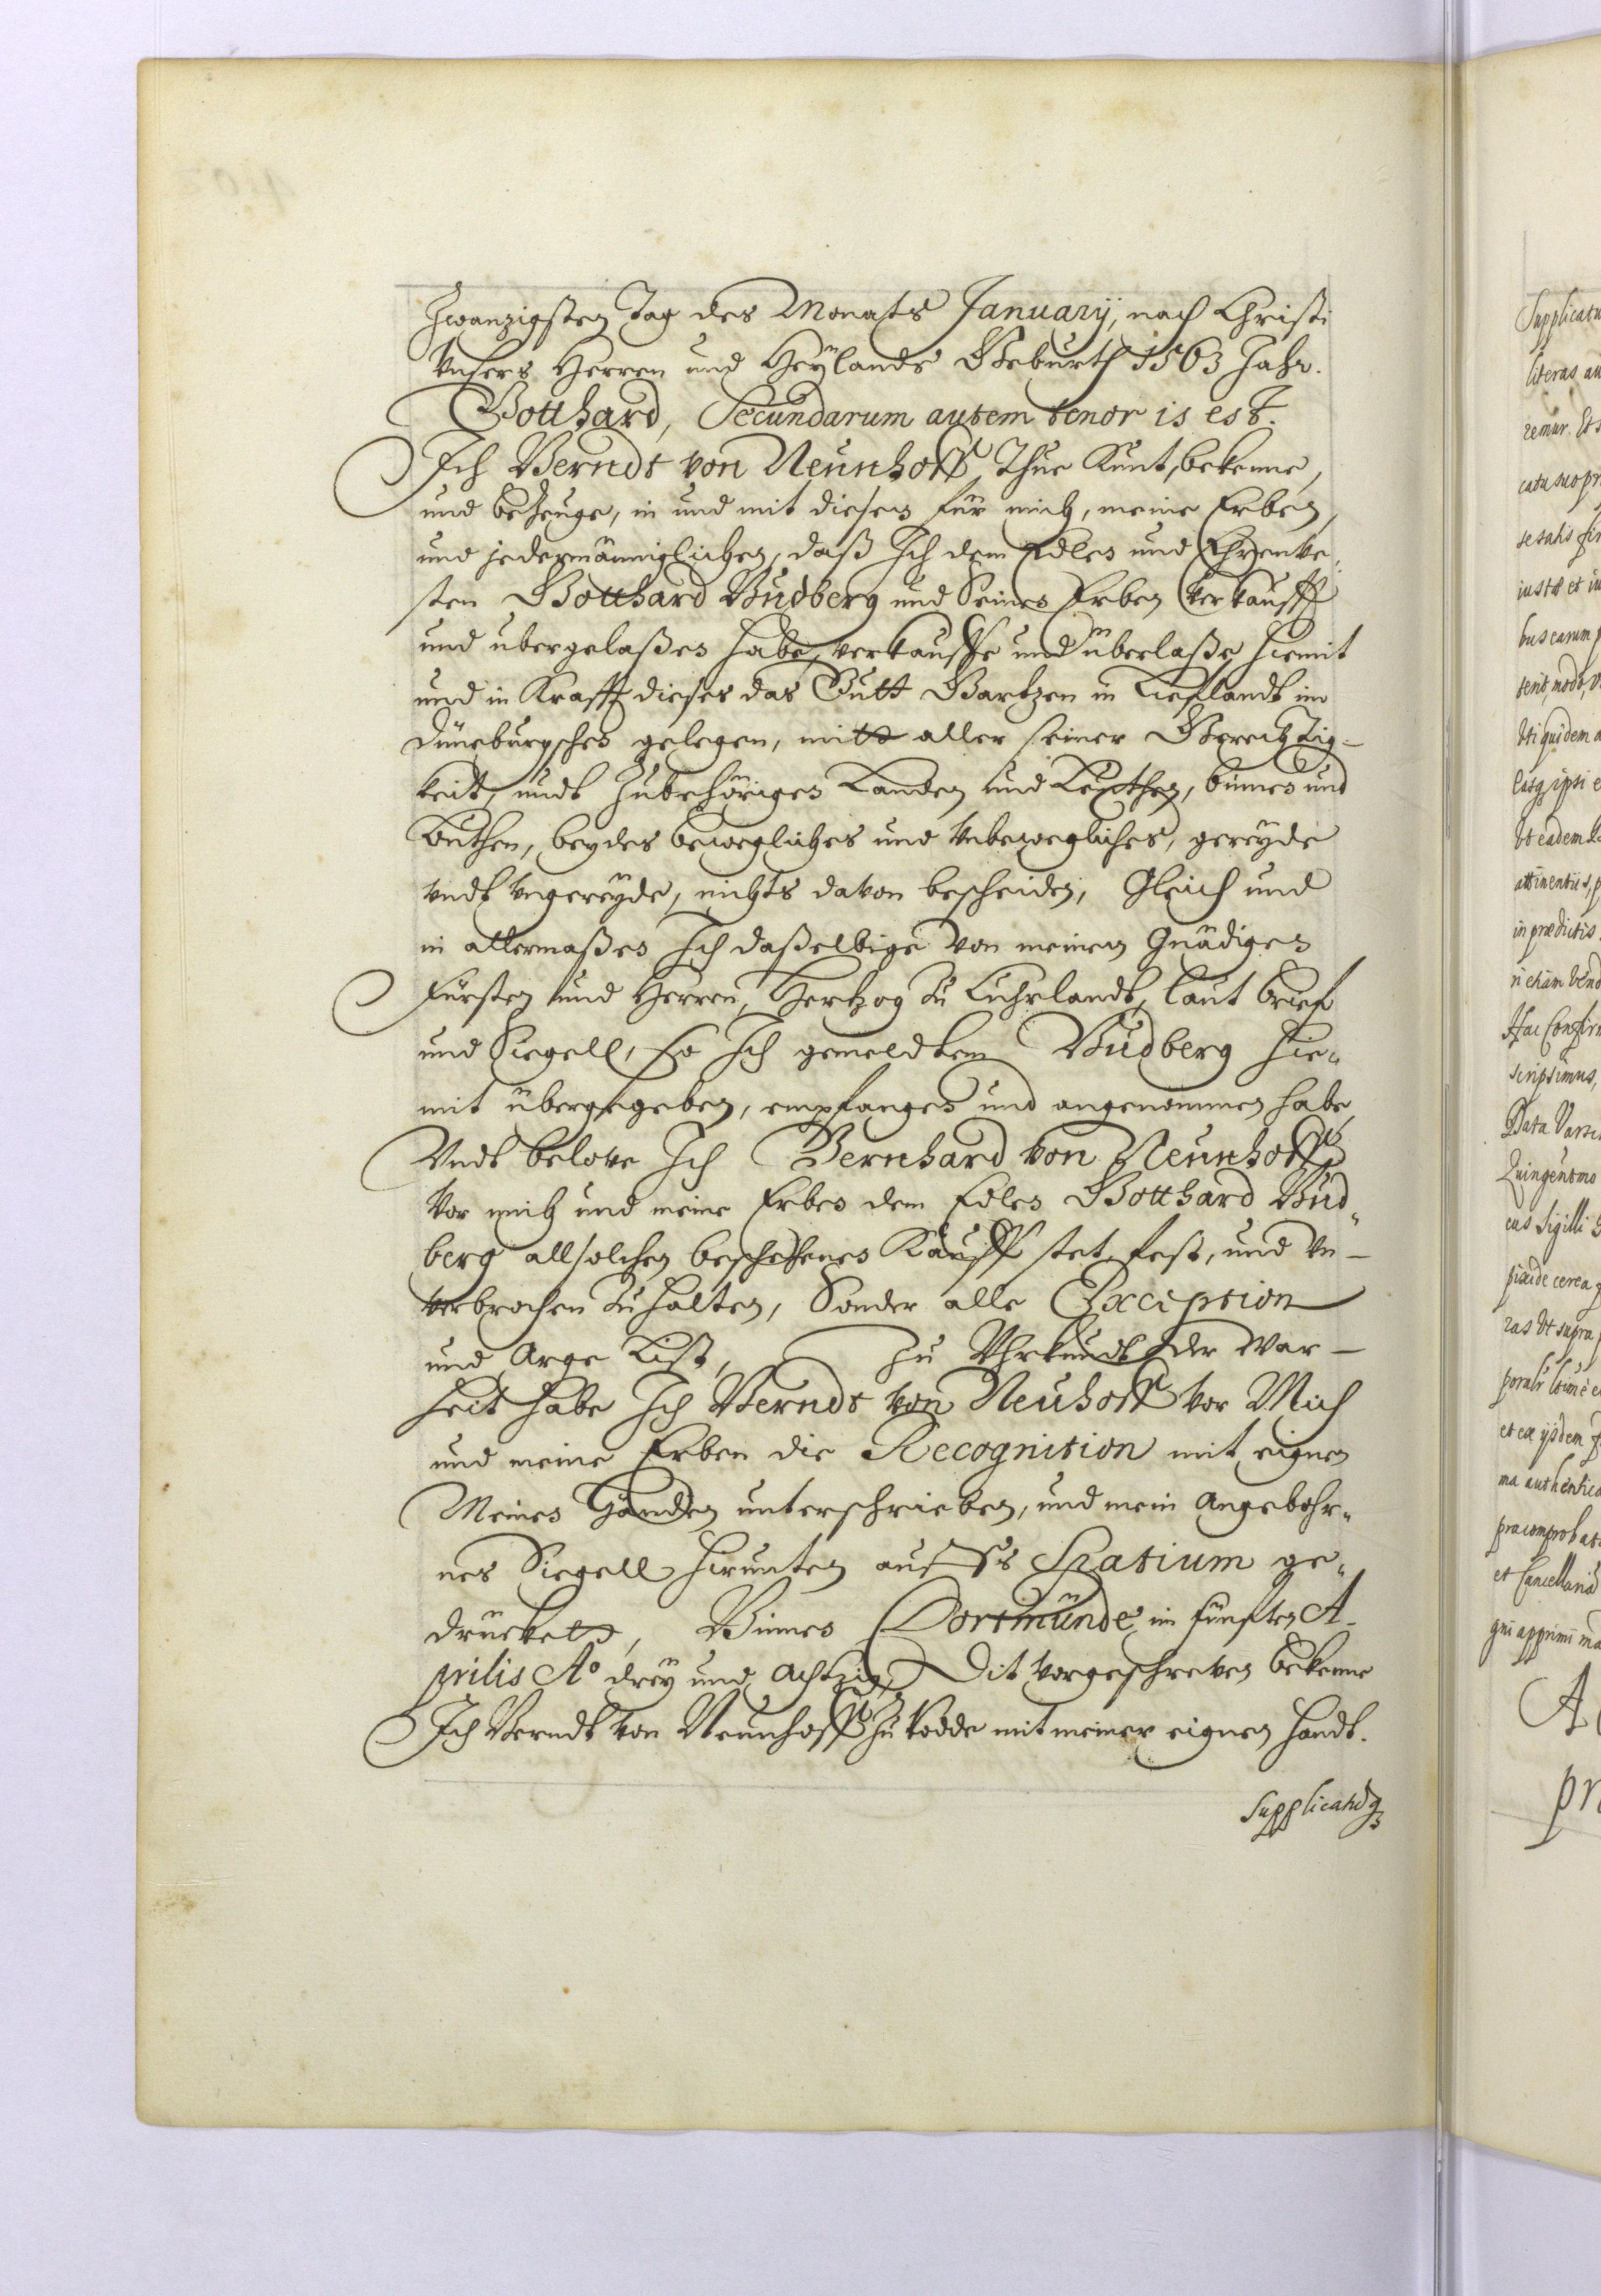 Zwanzigsten Tag des Monats Januarÿ, nach Christi
Vnsers Herren und Heÿlands Gebürth 1563 Jahr.
Gotthard, Secundarum autem tenor is est.
Ich Berndt von Neünhoff, Thue Kunt, bekenne,
und bezeuge, in und mit diesen für mich, meine Erben,
und jedermänniglichen, daß Ich dem Edlen und Ehrenve„
sten Gotthard Büdberg und Seinen Erben verkaufft
und ubergelaßen habe, verkauffe und überlaße hiemit
und in Krafft dieses das Gutt Gartzen in Lieflandt im
Düneburgschen gelegen, mitt aller seiner Gerechtig-
keit, undt Zubehörigen Landen und Leuthen, binnen und
Buthen, beydes bewegliches und Vnbewegliches, gereÿde
vndt vngereÿde, nichts davon bescheiden, Gleich und
in allermaßen Ich daßelbige von meinen Gnädigen
Fürsten und Herren, Hertzog zu Cuhrlandt, laut brief
und Siegell, so Ich gemeldtem Büdberg hie„
mit übergegeben, empfangen und angenommen habe,
Vndt belove Ich Bernhard von Neunhoff
vor mich und meine Erben dem Edlen Gotthard Büd„
berg allsolchen beschehenen Kauff stet, fest, und Vn-
verbrochen zuhalten, Sonder alle Exception
und Arge List, Zu Vhrkundt der War-
heit habe Ich Berndt von Neuhoff vor Mich
und meine Erben die Recognition mit eignen
Meinen Handen unterschrieben, und mein Angebohr„
nes Siegell hirunten auffs Spatium ge„
drückett, Binnen Dortmünde, im fünften A-
prilis Aº dreÿ und Achtzig, Dit vorgeschreven bekenne
Ich Berndt von Neunhoff zu Rodde mit meiner eignen Handt.
Supplicatũq3
Supplicatu
literas au
remur. Et
catu suo pr
se satis fir
iustæ et iu
bus earum p
ti quidem a
ipsi e
eadem
attinentiis, p
in prædictis
Hac Confirm
scripsimus,
Data Varso
Quingentmo
cus Sigilli
pixide cerea
ras vt supra
et ex ijsdem
ma authentica
et Cancellariæ
A
pr